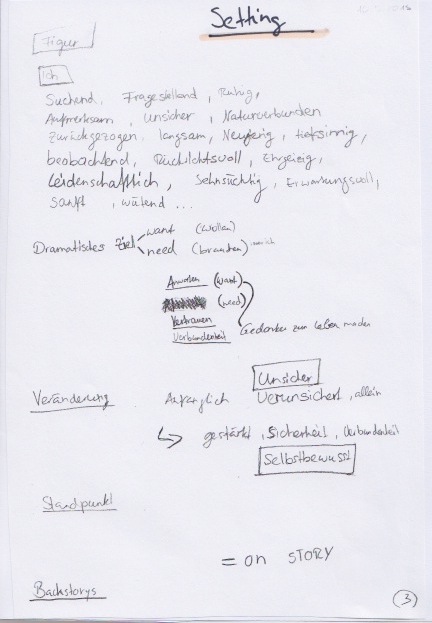 Setting
Figur
Ich
Suchend, Fragestellend, Ruhig,
Aufmerksam, unsicher, Naturverbunden
zurückgezogen, langsam, Neugierig, tiefsinnig,
beobachtend, Rücksichtsvoll, Ehrgeizig,
Leidenschaftlich, Sehnsüchtig, Erwartungsvoll,
Sanft, wütend ...
want (wollen)
Dramatisches Ziel
need (brauchen)
(want)
(need)
Vertrauen
Verbundenheit
Gedanken zum Leben machen
Unsicher
Veränderung Anfänglich Verunsichert, allein
↳ gestärkt, Sicherheit, Verbundenheit
Selbstbewusst
Standpunkt
= on STORY
Backstorys
3